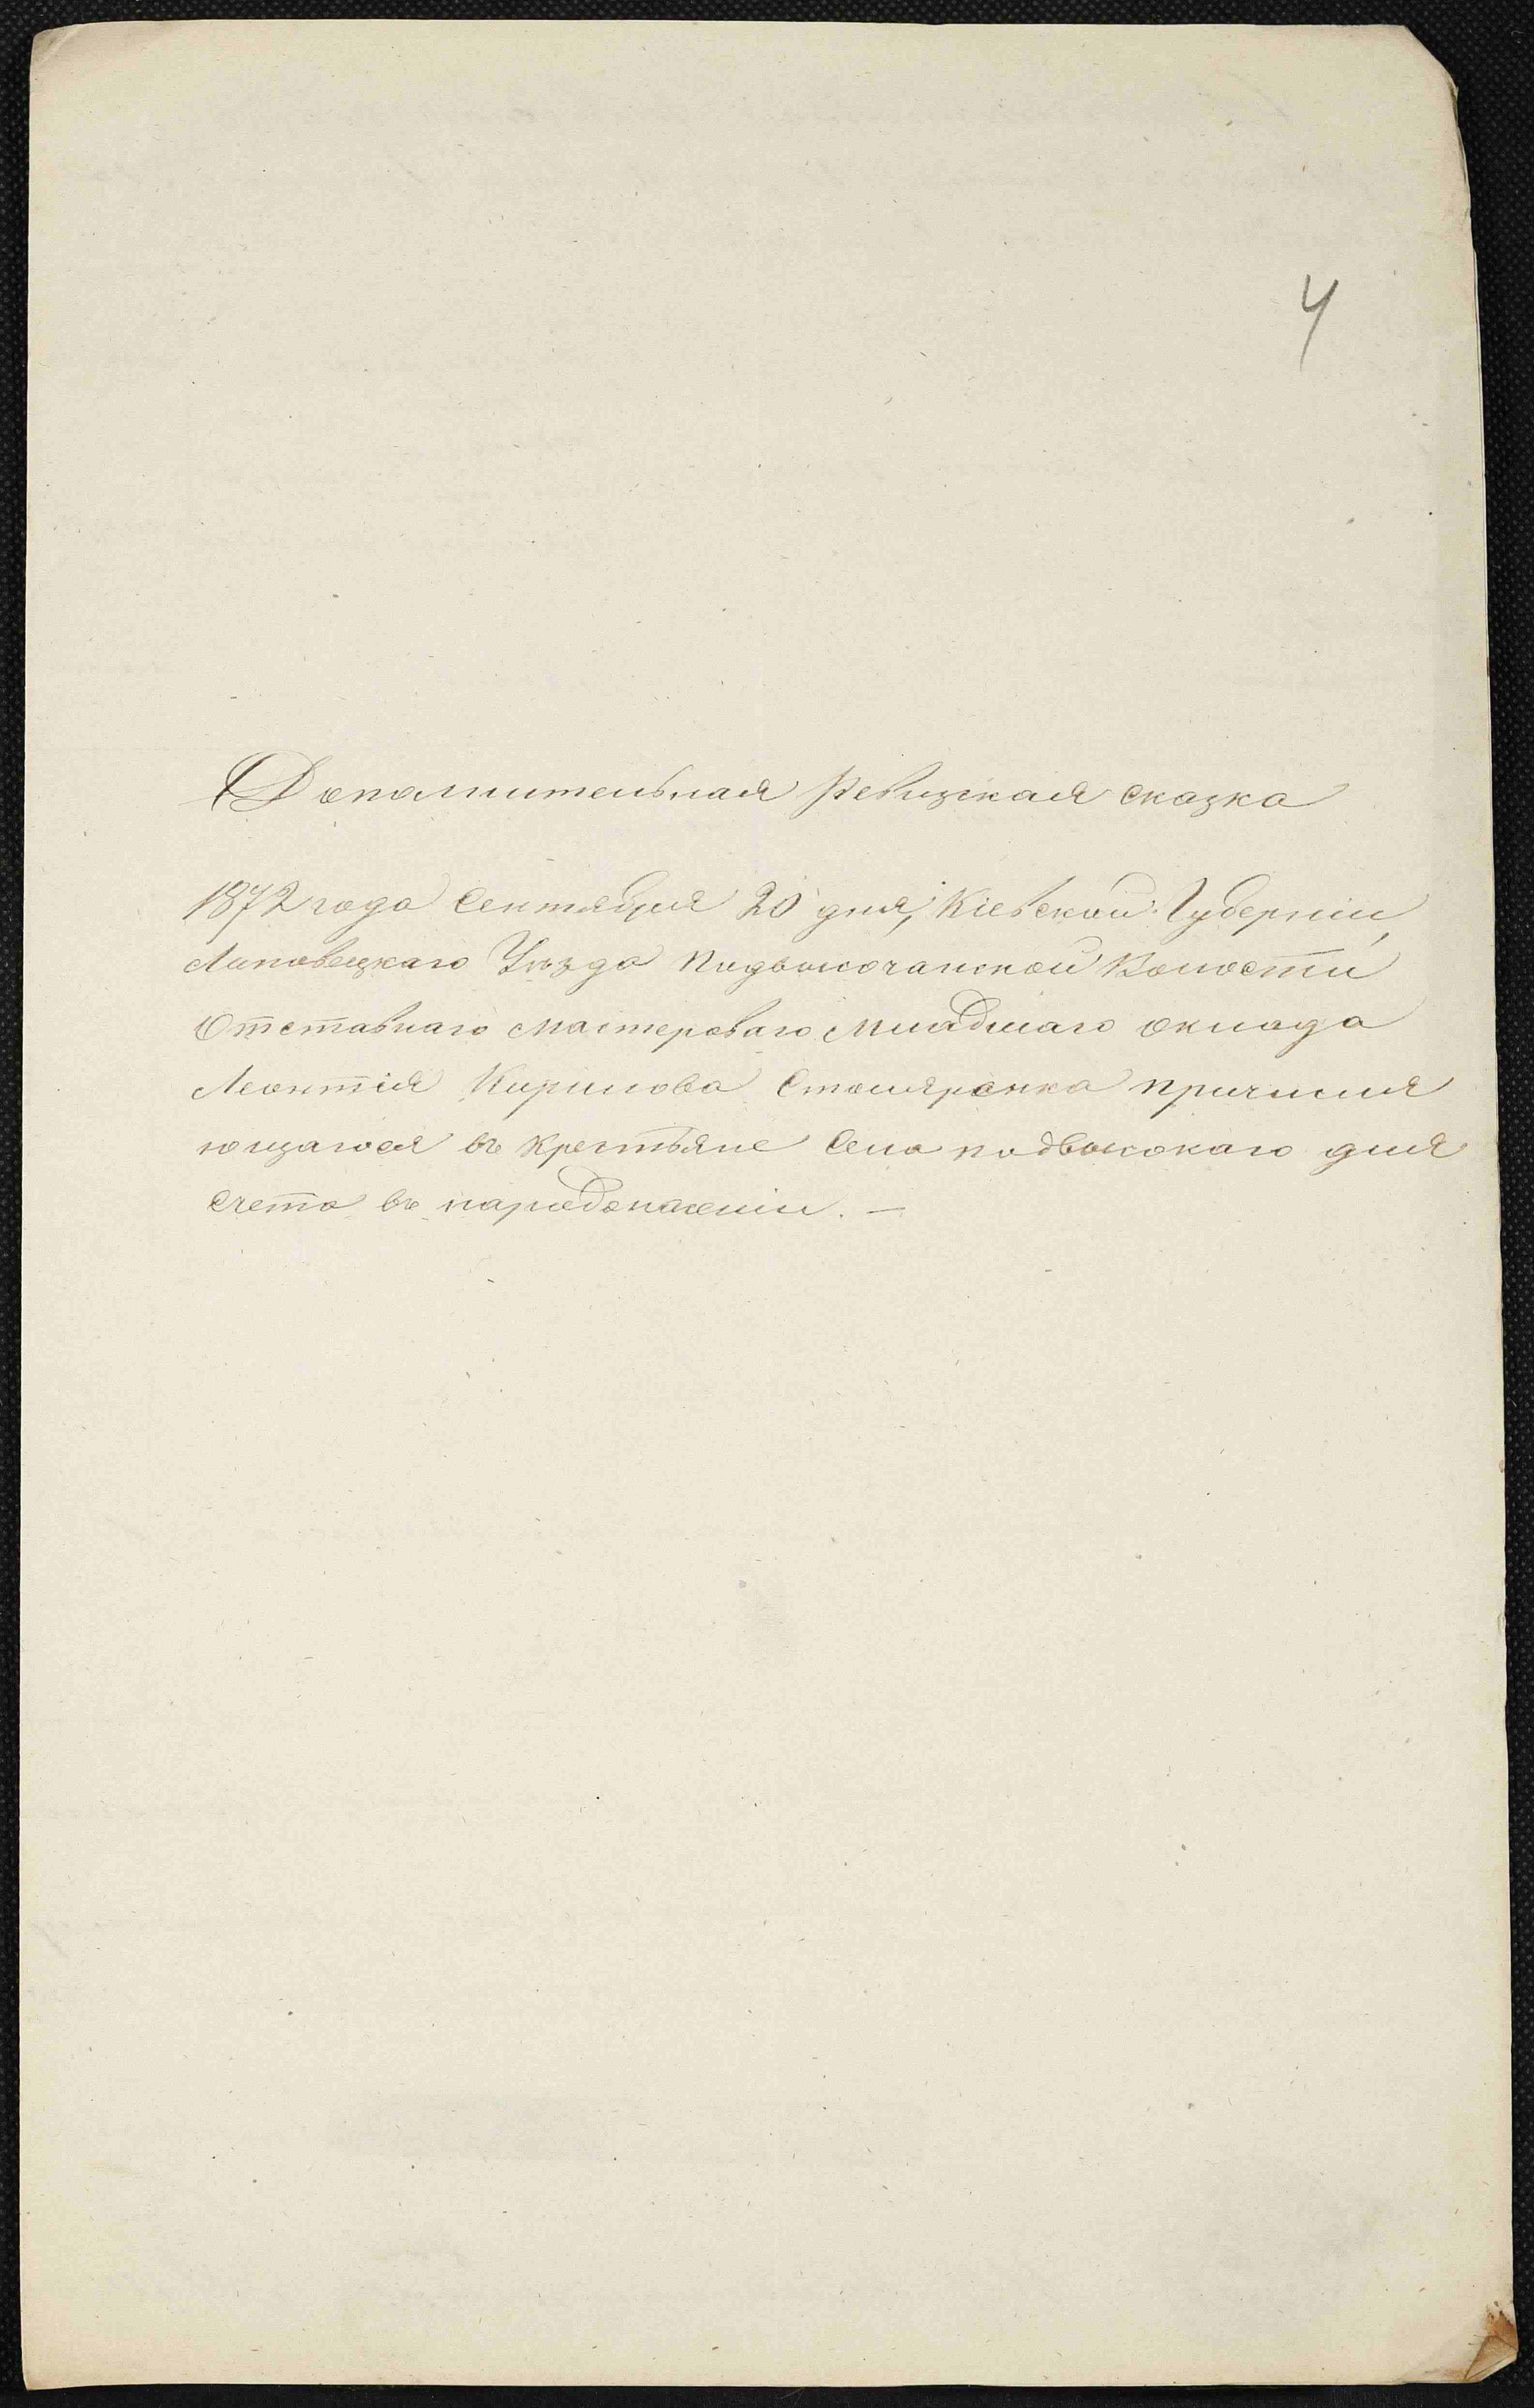 4
Дополнительная Ревизкая сказка
1872 года Сентября 20 дня, Кіевской Губерніи,
Липовецкаго Уѣзда Подвысочанской Волости
Отставнаго мастероваго младшаго оклада
Леонтія Кирилова Столяренка причисля
ющагося въ крестьяне Села подвысокаго для
счета въ народонаселеніи. —